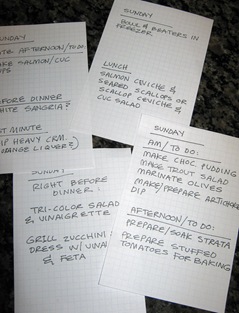 SUNDAY
BOWL & BEATERS IN
FREEZER
LUNCH
SALMON CEVICHE &
SEARED SCALLOPS OR
SCALLOP CEVICHE &
CUC SALAD
SUNDAY
AFTERNOON/TO DO:
MAKE SALMON/CUC
BEFORE DINNER
WHITE SANGRIA?
MINUTE
WHIP HEAVY CRM.
(ORANGE LIQUER?)
SUNDAY
RIGHT BEFORE
DINNER:
TRI-COLOR SALAD
& VINAIGRETTE
GRILL ZUCCHINI:
DRESS W/ VINAI
& FETA
SUNDAY
AM/TO DO:
MAKE CHOC PUDDING
MAKE TROUT SALAD
MARINATE OLIVES
MAKE/PREPARE ARTICHOKE
DIP
AFTERNOON/TO DO:
PREPARE/SOAK STRATA
PREPARE STUFFED
TOMATOES FOR BAKING